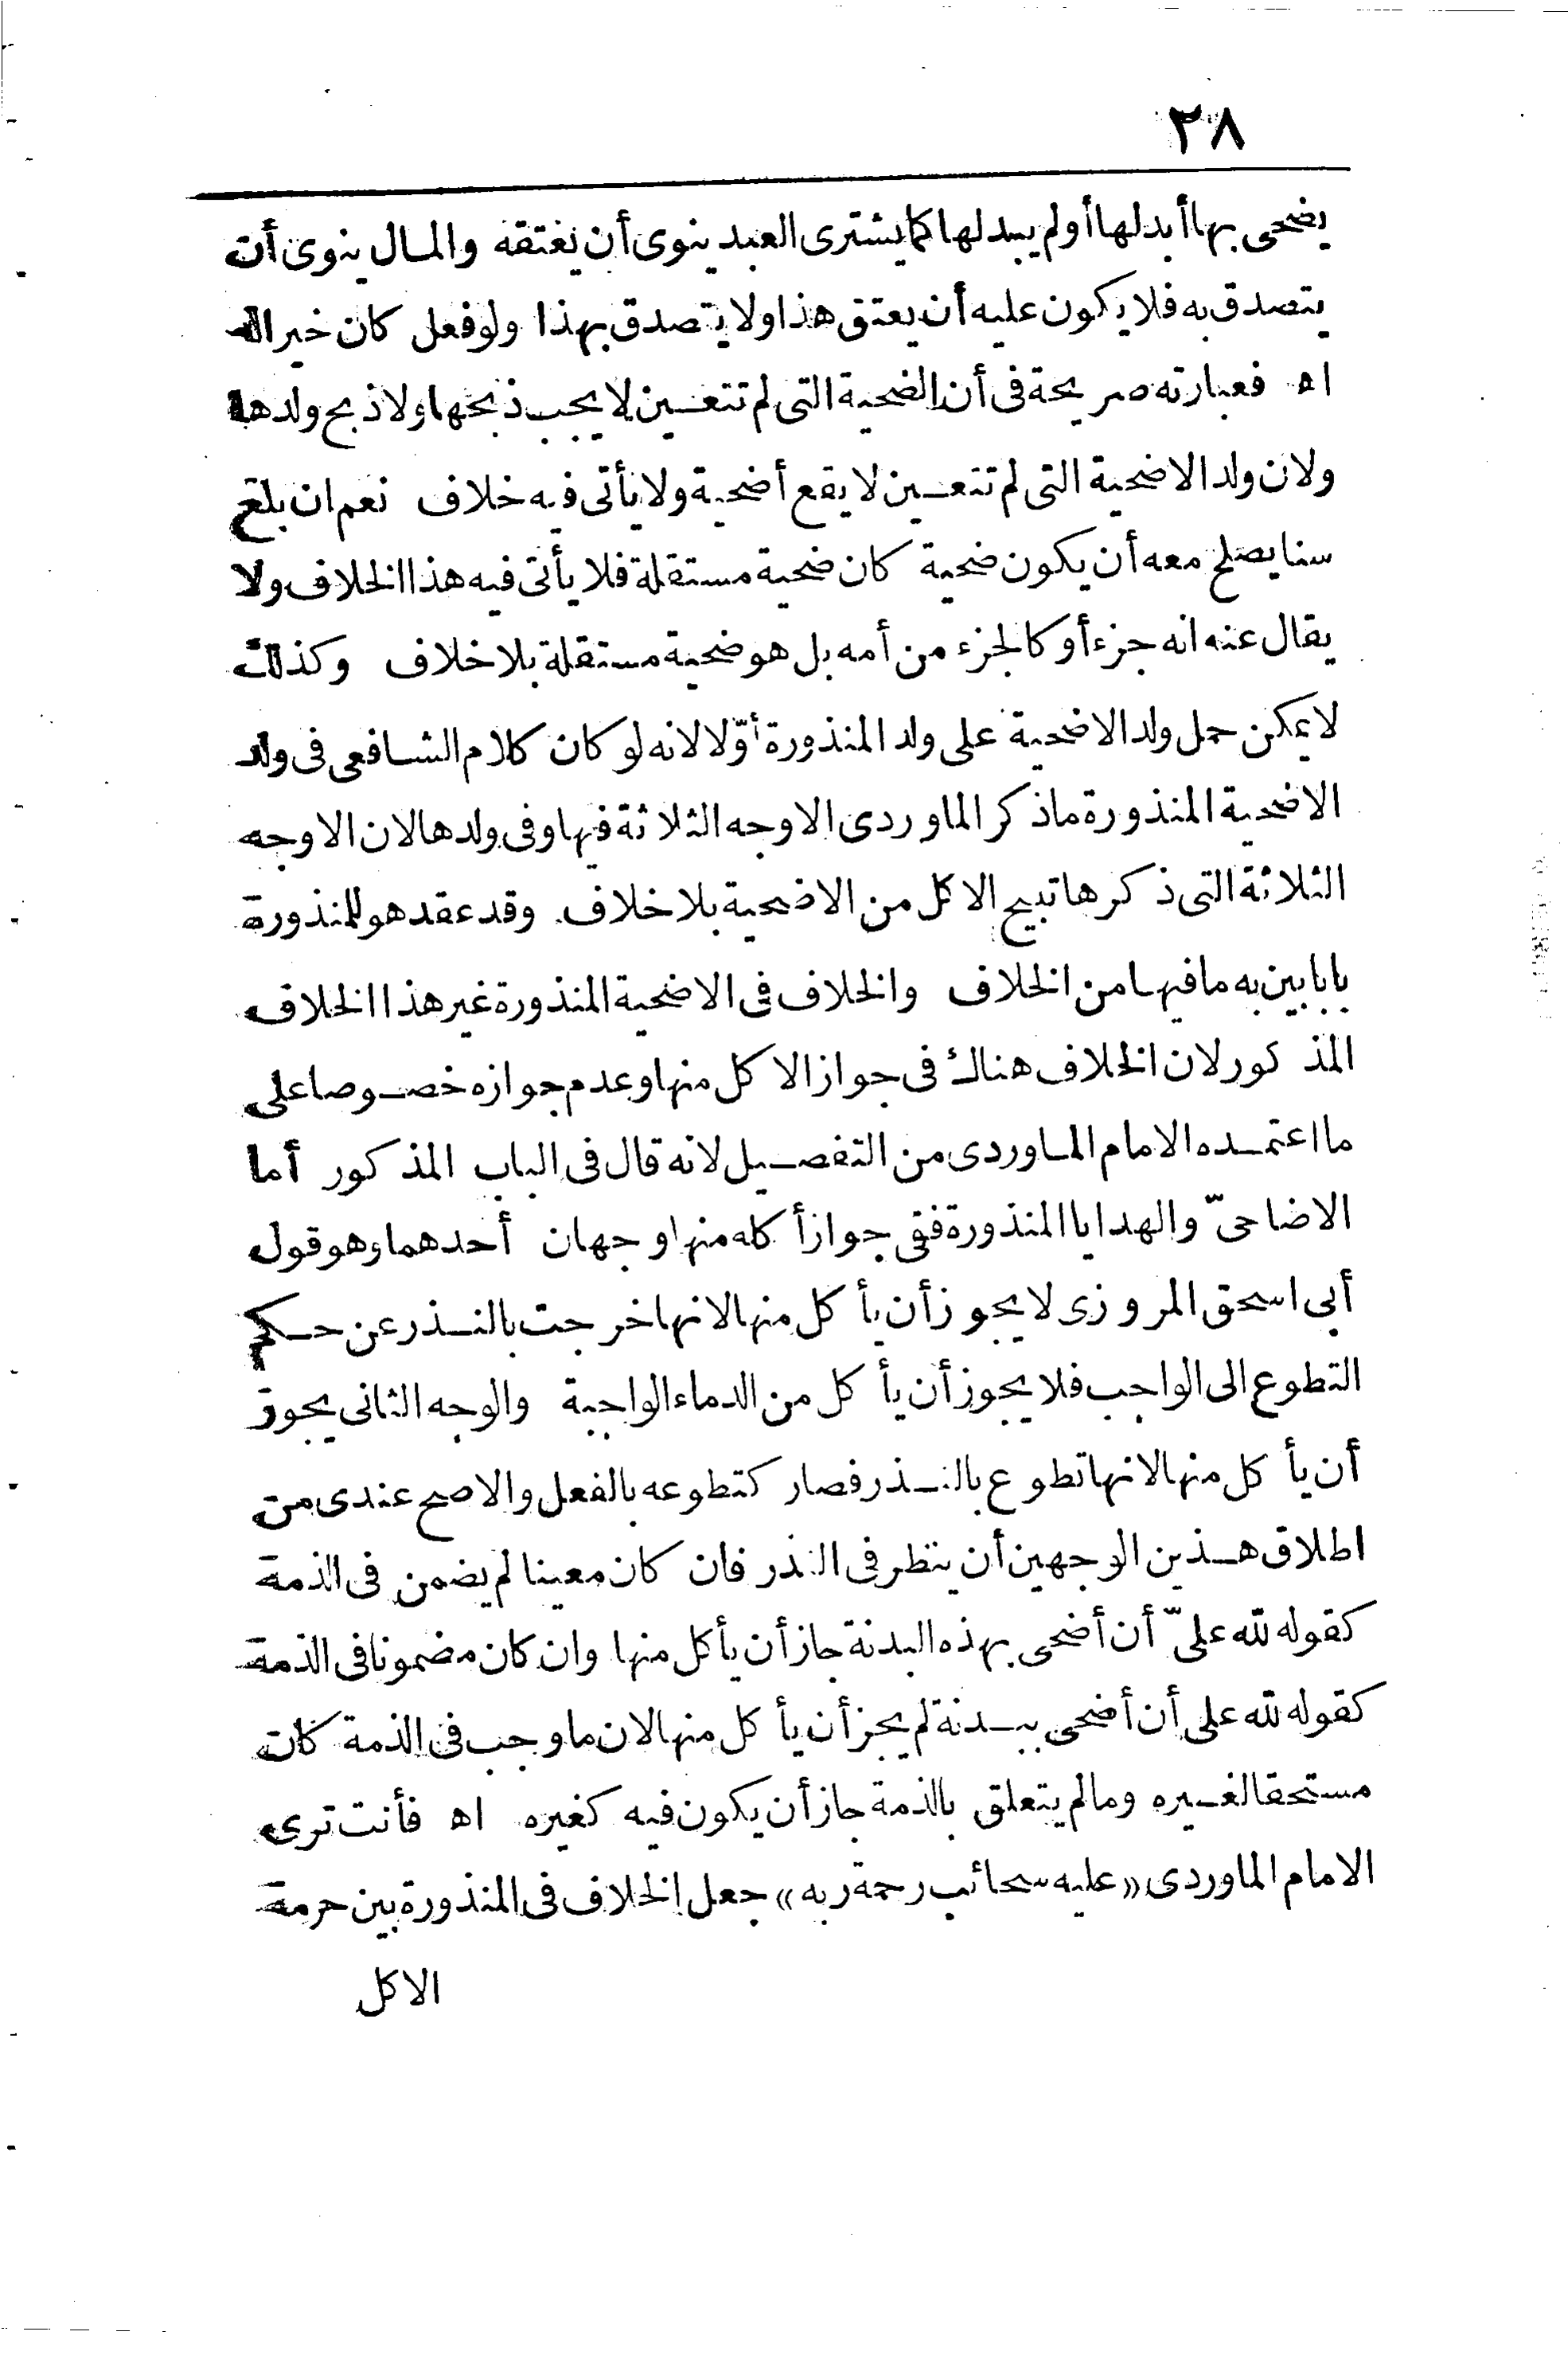 ٢٨
يضحى بها أبدلها أو لم يبدلها كما يشترى العبد ينوى أن يعتقه والمال ينوى أن
يتصدق به فلا يكون عليه أن يعتق هذا ولا يتصدق بهذا ولو فعل كان خيرا له
اه فعبارته صريحة فى أن الضحية التى لم تتعين لا يجب ذبحها ولا ذبح ولدها
ولان ولد الاضحية التى لم تتعين لا يقع أضحية ولا يأتى فيه خلاف نعم ان بلغ
سنا يصلح معه أن يكون ضحية كان ضحية مستقلة فلا يأتى فيه هذا الخلاف ولا
يقال عنه انه جزء أو كالجزء من أمه بل هو ضحية مستقلة بلا خلاف وكذلك
لا يمكن حمل ولد الاضحية على ولد المنذورة أوّلا لانه لو كان كلام الشافعى فى ولد
الاضحية المنذورة ما ذكر الماوردى الاوجه الثلاثة فيها وفى ولدها لان الاوجه
الثلاثة التى ذكرها تبيح الاكل من الاضحية بلا خلاف وقد عقد هو للمنذورة
بابا بين به ما فيها من الخلاف والخلاف فى الاضحية المنذورة غير هذا الخلاف
المذكور لان الخلاف هناك فى جواز الاكل منها وعدم جوازه خصوصا على
ما اعتمده الامام الماوردى من التفصيل لانه قال فى الباب المذكور أما
الاضاحىّ والهدايا المنذورة ففى جواز أكله منها وجهان أحدهما وهو قول
أبى اسحق المروزى لا يجوز أن يأكل منها لانها خرجت بالنذر عن حكم
التطوع الى الواجب فلا يجوز أن يأكل من الدماء الواجبة والوجه الثانى يجوز
أن يأكل منها لانها تطوع بالنذر فصار كتطوعه بالفعل والاصح عندى من
اطلاق هذين الوجهين أن ينظر فى النذر فان كان معينا لم يضمن فى الذمة
كقوله لله علىّ أن أضحى بهذه البدنة جاز أن يأكل منها وان كان مضمونا فى الذمة
كقوله لله على أن أضحى ببدنة لم يجز أن يأكل منها لان ما وجب فى الذمة كان
مستحقا لغيره وما لم يتعلق بالذمة جاز أن يكون فيه كغيره اه فأنت ترى
الامام الماوردى «عليه سحائب رحمة ربه» جعل الخلاف فى المنذورة بين حرمة
الاكل